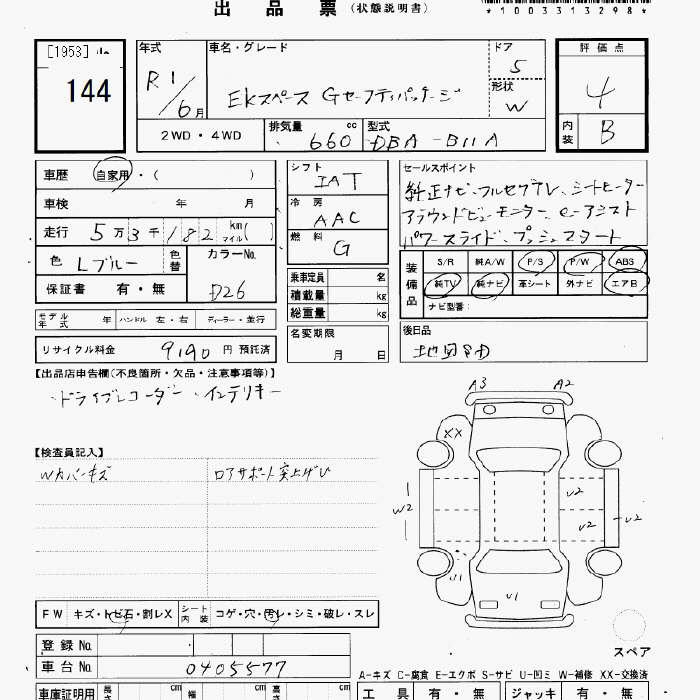 出品票（状態説明書）
*1003313298*
[1953] 144
年式 R1/6月
車名・グレード EKスペース Gセーフティパッケージ
ドア 5
形状 W
評価点 4
内装 B
2WD・4WD
排気量 660 cc
型式 DBA-B11A
車歴 自家用・( )
車検 年 月
走行 5万3千182 km マイル( )
色 Lブルー 色替
カラーNo. D26
保証書 有・無
シフト IAT
冷房 AAC
燃料 G
乗車定員 名
積載量 kg
総重量 kg
セールスポイント
純正ナビ、フルセグTV、シートヒーター
アラウンドビューモニター、e-アシスト
パワースライド、プッシュスタート
装備品 S/R 純A/W P/S P/W ABS
純TV 純ナビ 革シート 外ナビ エアB
ナビ型番：
モデル年式 年 ハンドル 左・右 ディーラー・並行
名変期限 月 日
後日品
リサイクル料金 9190 円 預託済
【出品店申告欄(不良箇所・欠品・注意事項等)】
・ドライブレコーダー・インテリキー
【検査員記入】
Wカバーキズ
ロアサポート突上げU
A3 A2
XX
W2
U2
U2
U2
U1
U1
スペア
FW キズ・トビ石・割レX
シート内装 コゲ・穴・汚レ・シミ・破レ・スレ
登録No.
車台No. 0405577
A-キズ C-腐食 E-エクボ S-サビ U-凹ミ W-補修 XX-交換済
車庫証明用 長さ cm 幅 cm cm
工具 有・無 ジャッキ 有・無